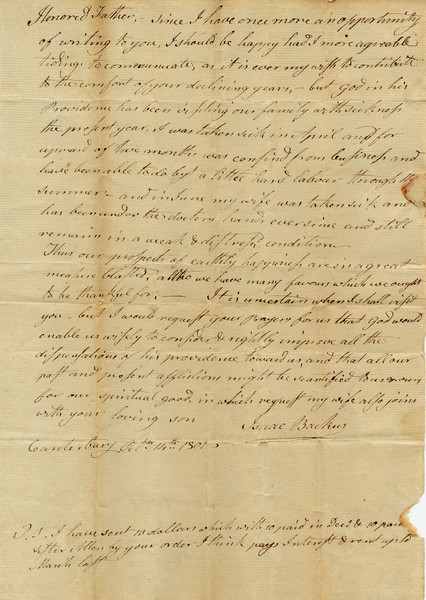 Honored Father,- Since I have once more an opportunity
of writing to you, I should be happy had I more agreable
tidings to communicate, as it is ever my wish to contribute
to the comfort of your declining years,- but God in his
Providence has been visiting our family with sickness
the present year, I was taken sick in April and for
upward of two months was confind from business and
have been able to do but a little hard labour through the
Summer- and in June my wife was taken sick and
has been under the doctors hands ever sine and still
remains in a weak & distress'd condition
Thus our prospects of earthly happiness are in a great
measure blasted, altho we have many favours which we ought
to be thankful for;- It is uncertain when I shall visit
you- but I would request your Prayers for us that God would
enable us wisely to consider & rightly improve all the
dispensations of his providence towards us, and that all our
past and present afflictions might be sanctified to us
for our spiritual good, in which request my wife also joins
with your loving son
Isaac Backus
Canterbury Octr 14th 1801
P.S. I have sent 13 dollars which with 10 paid in Decr & 10 paid
Sister Allen by your order I think pays Interest & rent up to
March last